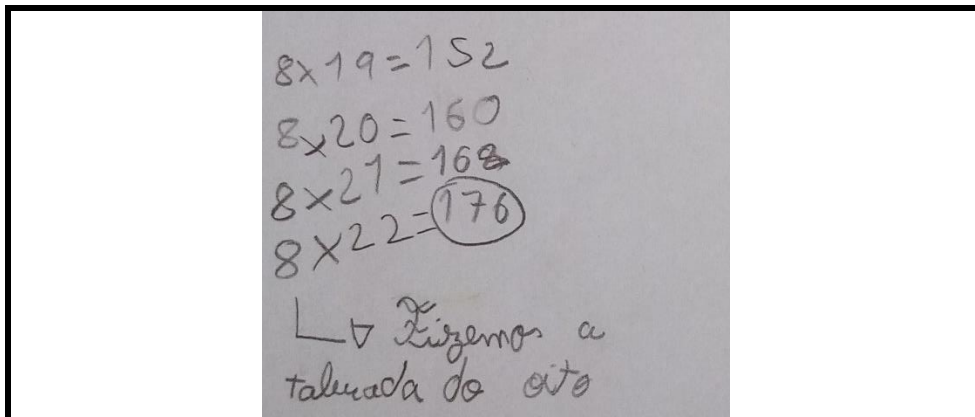 8x19=152
8x20=160
8x21=168
8x22=176
Fizemos a
tabuada do oito